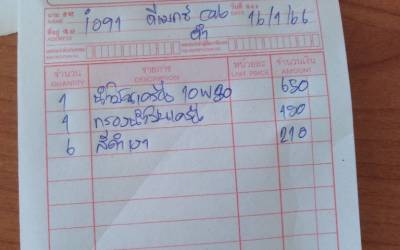 นาม ไอ้91 ดีแมกซ์ cab วันที่ 16/1/66
ที่อยู่ ดำ
ADDRESS
จำนวน รายการ หน่วยละ จำนวนเงิน
QUANTITY DESCRIPTION UNIT PRICE AMOUNT
1 น้ำมันเครื่อง 10W30 650
1 กรองน้ำมันเครื่อง 190
6 สีดำเงา 210